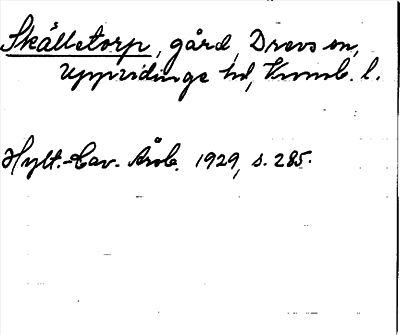 Skälletorp, gård, Drevs sn,
Uppvidinge hd, Kronob. l.
Hylt.-Cav. Årsb. 1929, s. 285.